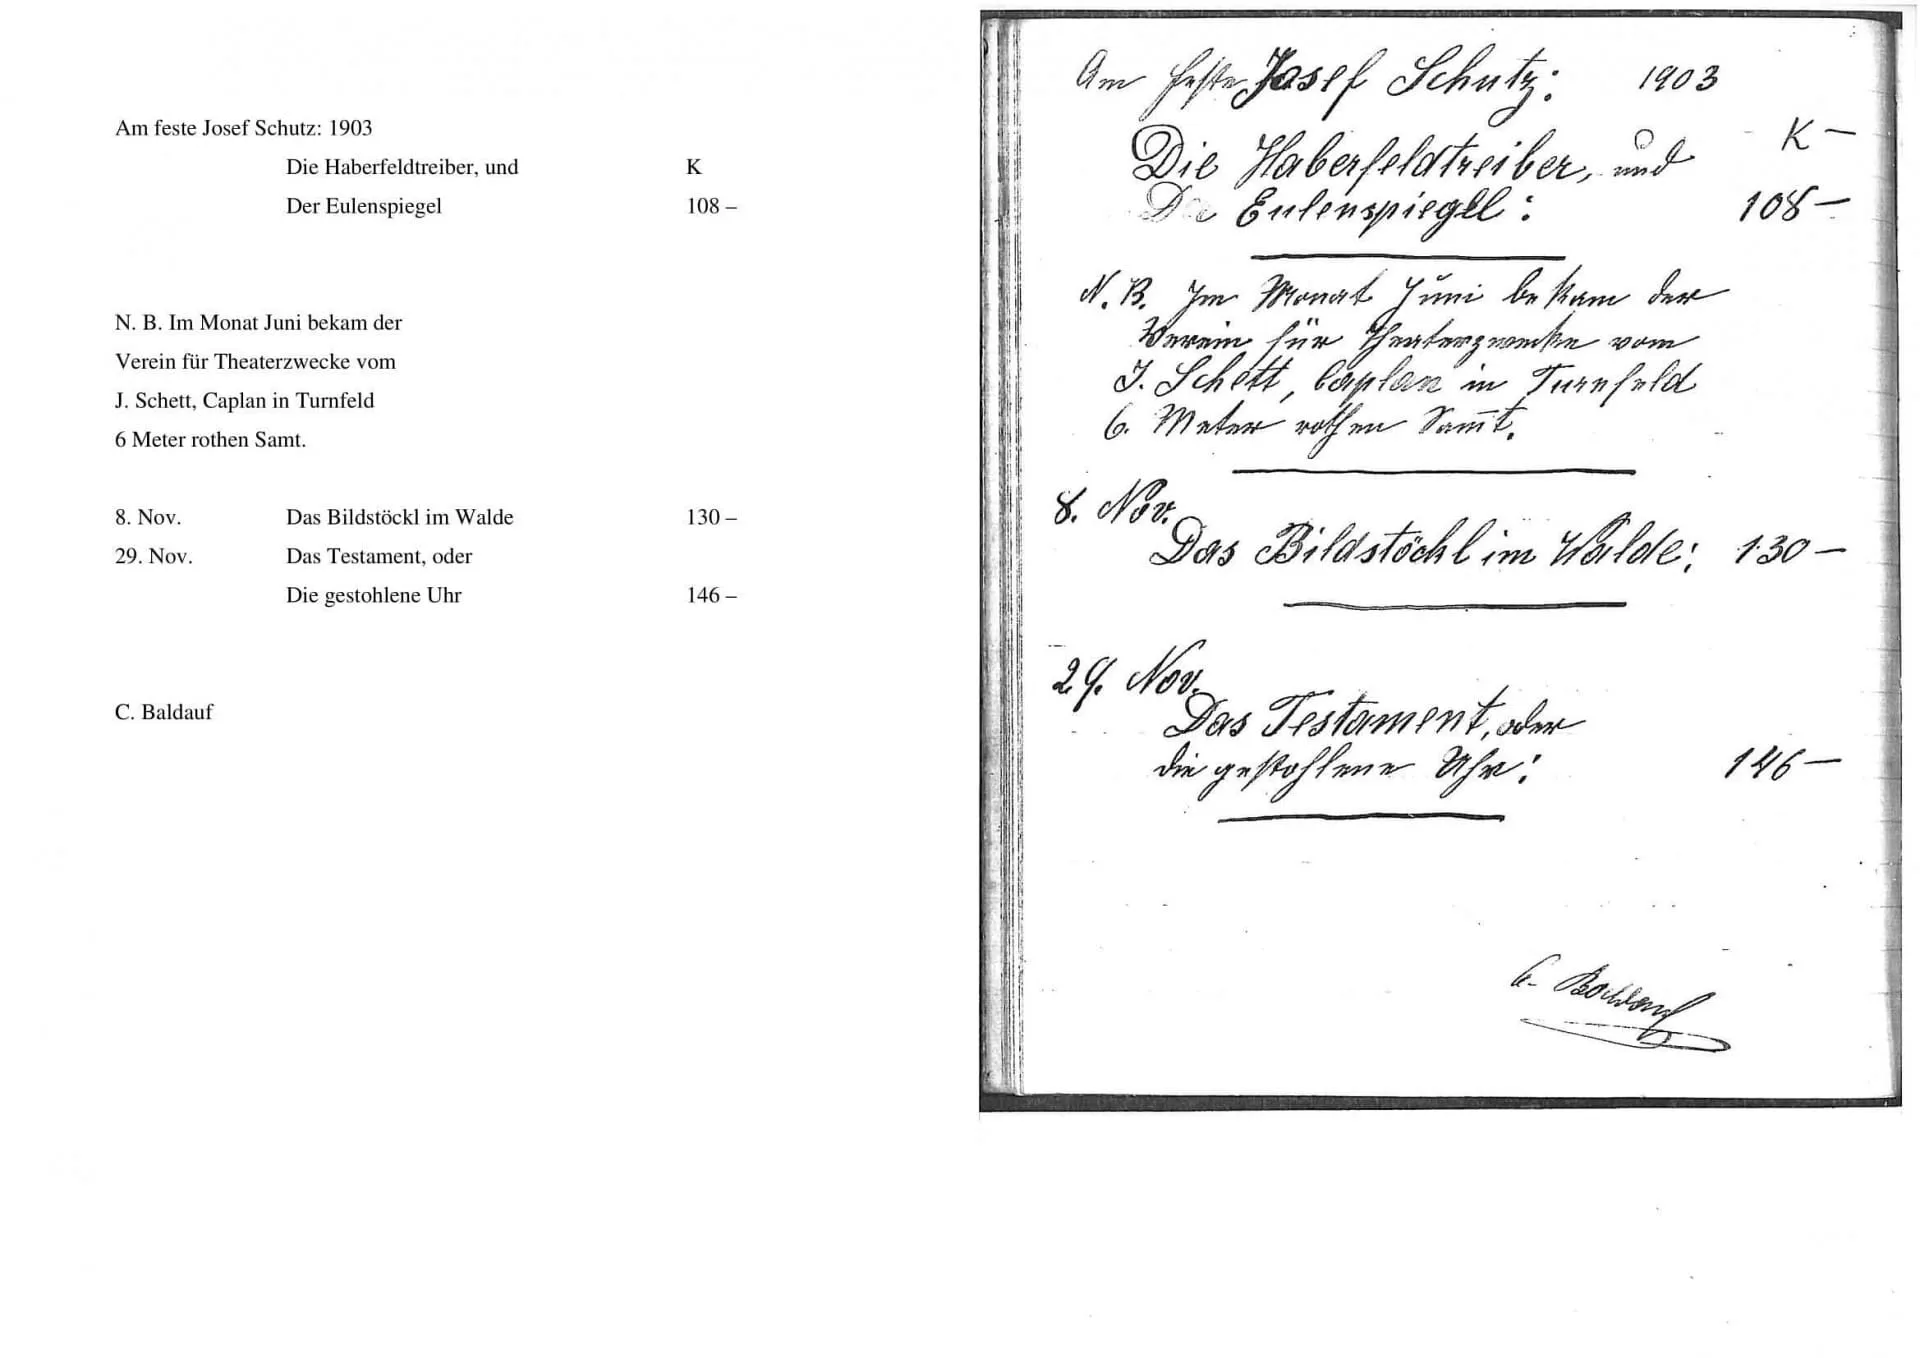 Am feste Josef Schutz: 1903
Die Haberfeldtreiber, und K
Der Eulenspiegel 108 –
N. B. Im Monat Juni bekam der
Verein für Theaterzwecke vom
J. Schett, Caplan in Turnfeld
6 Meter rothen Samt.
8. Nov. Das Bildstöckl im Walde 130 –
29. Nov. Das Testament, oder
Die gestohlene Uhr 146 –
C. Baldauf
Am feste Josef Schutz: 1903
K –
Die Haberfeldtreiber, und
Der Eulenspiegel: 108 –
N. B. Im Monat Juni bekam der
Verein für Theaterzwecke vom
J. Schett, Caplan in Turnfeld
6. Meter rothen Sam̅t.
8. Nov.
Das Bildstöckl im Walde: 130 –
29. Nov.
Das Testament, oder
die gestohlene Uhr: 146 –
C. Baldauf